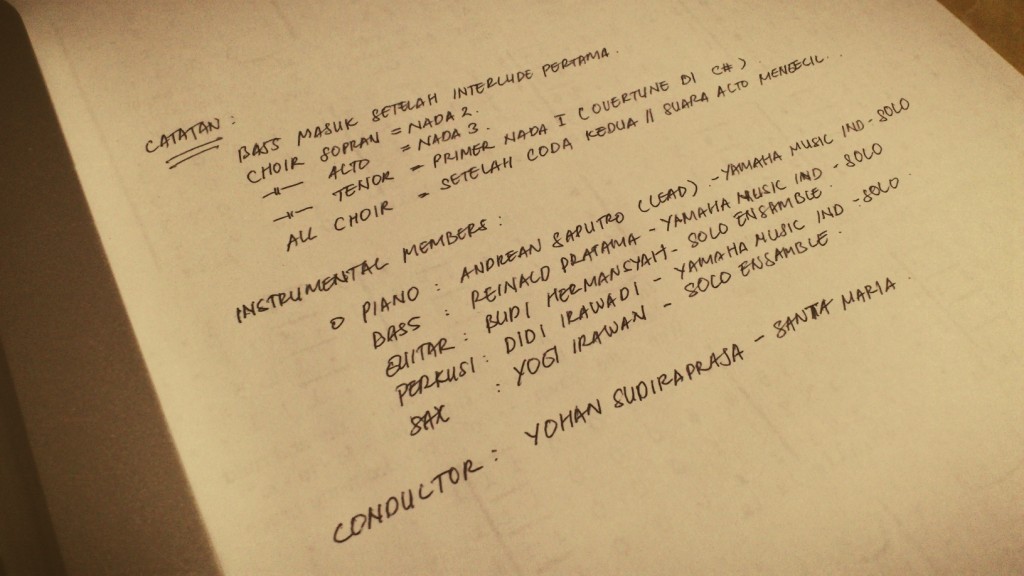 CATATAN :
BASS MASUK SETELAH INTERLUDE PERTAMA.
CHOIR SOPRAN = NADA 2.
-||- ALTO = NADA 3.
-||- TENOR - PRIMER NADA I (OVERTUNE DI C#)
ALL CHOIR - SETELAH CODA KEDUA // SUARA ALTO MENGECIL..
INSTRUMENTAL MEMBERS :
O PIANO : ANDREAN SAPUTRO (LEAD) - YAMAHA MUSIC IND - SOLO
BASS : REINALD PRATAMA - YAMAHA MUSIC IND - SOLO
GUITAR : BUDI HERMANSYAH - SOLO ENSAMBLE.
PERKUSI : DIDI IRAWADI - YAMAHA MUSIC IND - SOLO.
SAX : YOGI IRAWAN - SOLO ENSAMBLE.
CONDUCTOR : YOHAN SUDIRAPRAJA - SANTA MARIA.